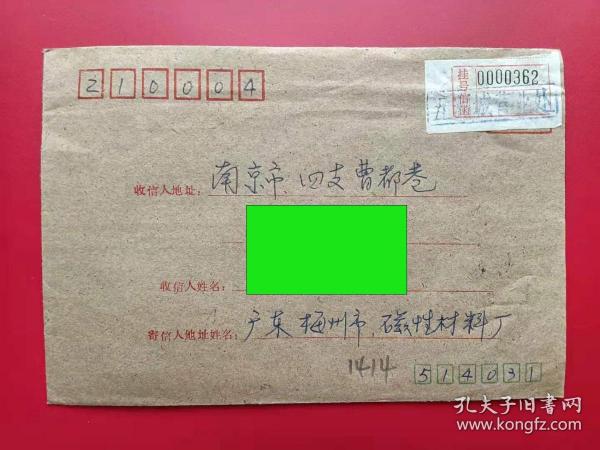 210004
挂号信函 0000362
收信人地址: 南京市、四支曹都巷
收信人姓名:
寄信人地址姓名: 广东梅州市、磁性材料厂
1414
514031
孔夫子旧书网
www.kongfz.com